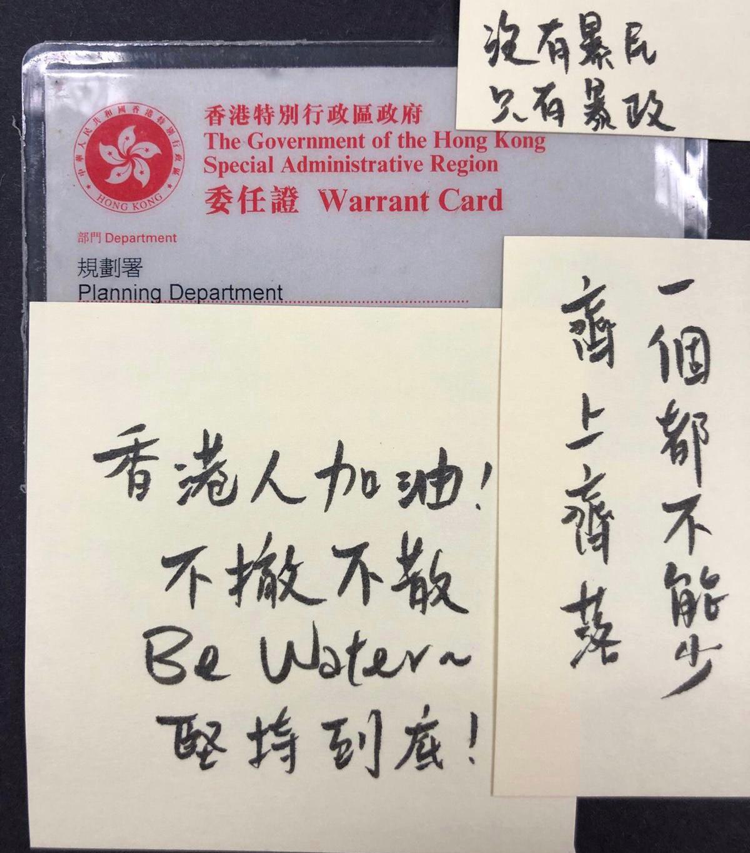 沒有暴民
只有暴政
中華人民共和國香港特別行政區
HONG KONG
香港特別行政區政府
The Government of the Hong Kong
Special Administrative Region
委任證 Warrant Card
部門 Department
規劃署
Planning Department
一個都不能少
齊上齊落
香港人加油!
不撤不散
Be Water~
堅持到底!